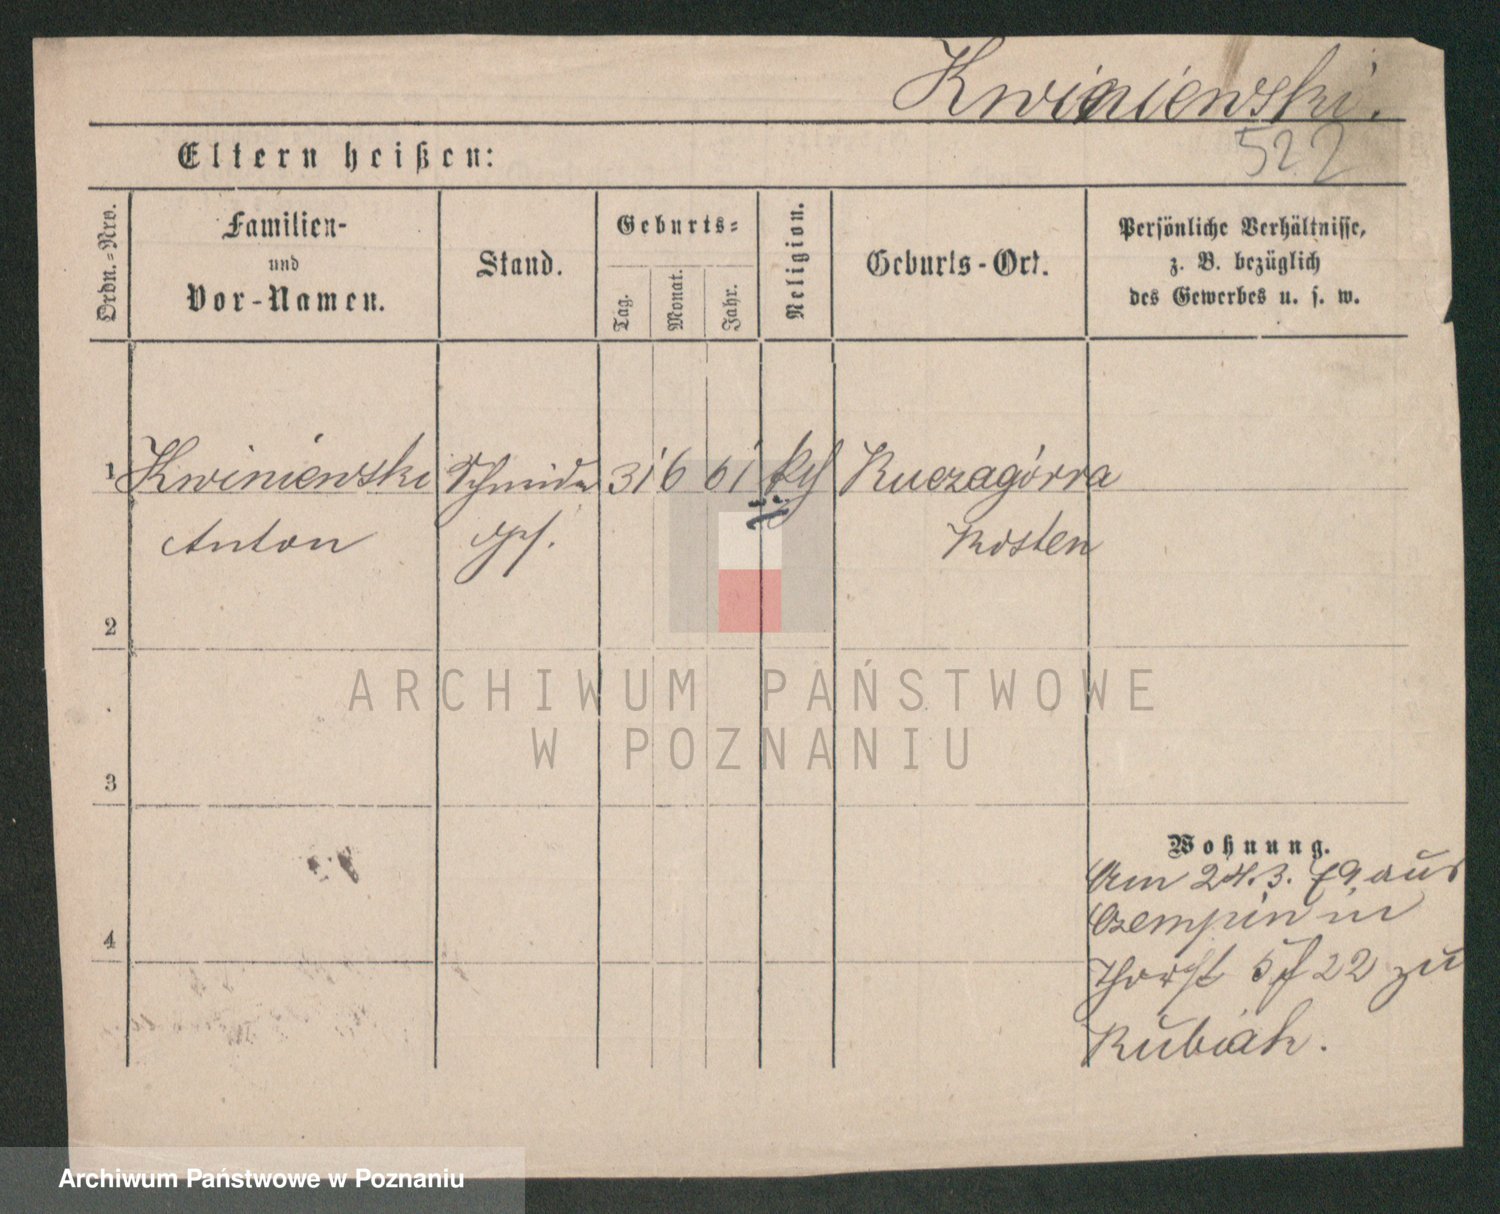 Kwiniewski.
522
Eltern heißen:
Ordn.=Nro.
Familien-
und
Vor-Namen.
Stand.
Geburts=
Tag.
Monat.
Jahr.
Religion.
Geburts-Ort.
Persönliche Verhältnisse,
z. B. bezüglich
des Gewerbes u. s. w.
1 Kwiniewski Schmide 31 6 61 kth
Anton Kosten
2
ARCHIWUM PAŃSTWOWE
W POZNANIU
3
Wohnung.
Am 24.3. 79 aus
Czempin in
4
22 zu
Archiwum Państwowe w Poznaniu